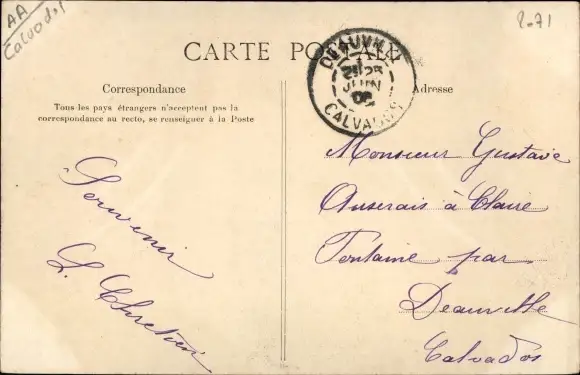 AA
Calvados
2071
CARTE POSTALE
DEAUVILLE
25
JUIN
CALVADOS
Correspondance
Adresse
Tous les pays étrangers n'acceptent pas la
correspondance au recto, se renseigner à la Poste
Souvenir
L. Chretien
Monsieur Gustave
Auserais à Claire
Fontaine par
Deauville
Calvados